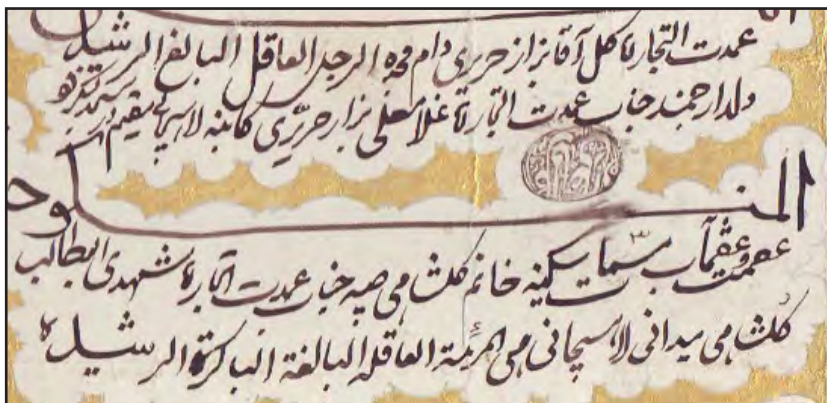 عمدت التجار کل آقا بزاز حریری دام مجده الرجل العاقل البالغ الرشید
ولد ارجمند جناب عمدت التجار غلامعلی بزاز حریری لاهیجان مقیم
المنکوحه
عصمت و عفت مآب مسمات سکینه خانم صبیه جناب عمدت التجار مشهدی ابیطالب
میدانی لاهیجانی هی المرئة العاقلة البالغة الباکرة الرشیده